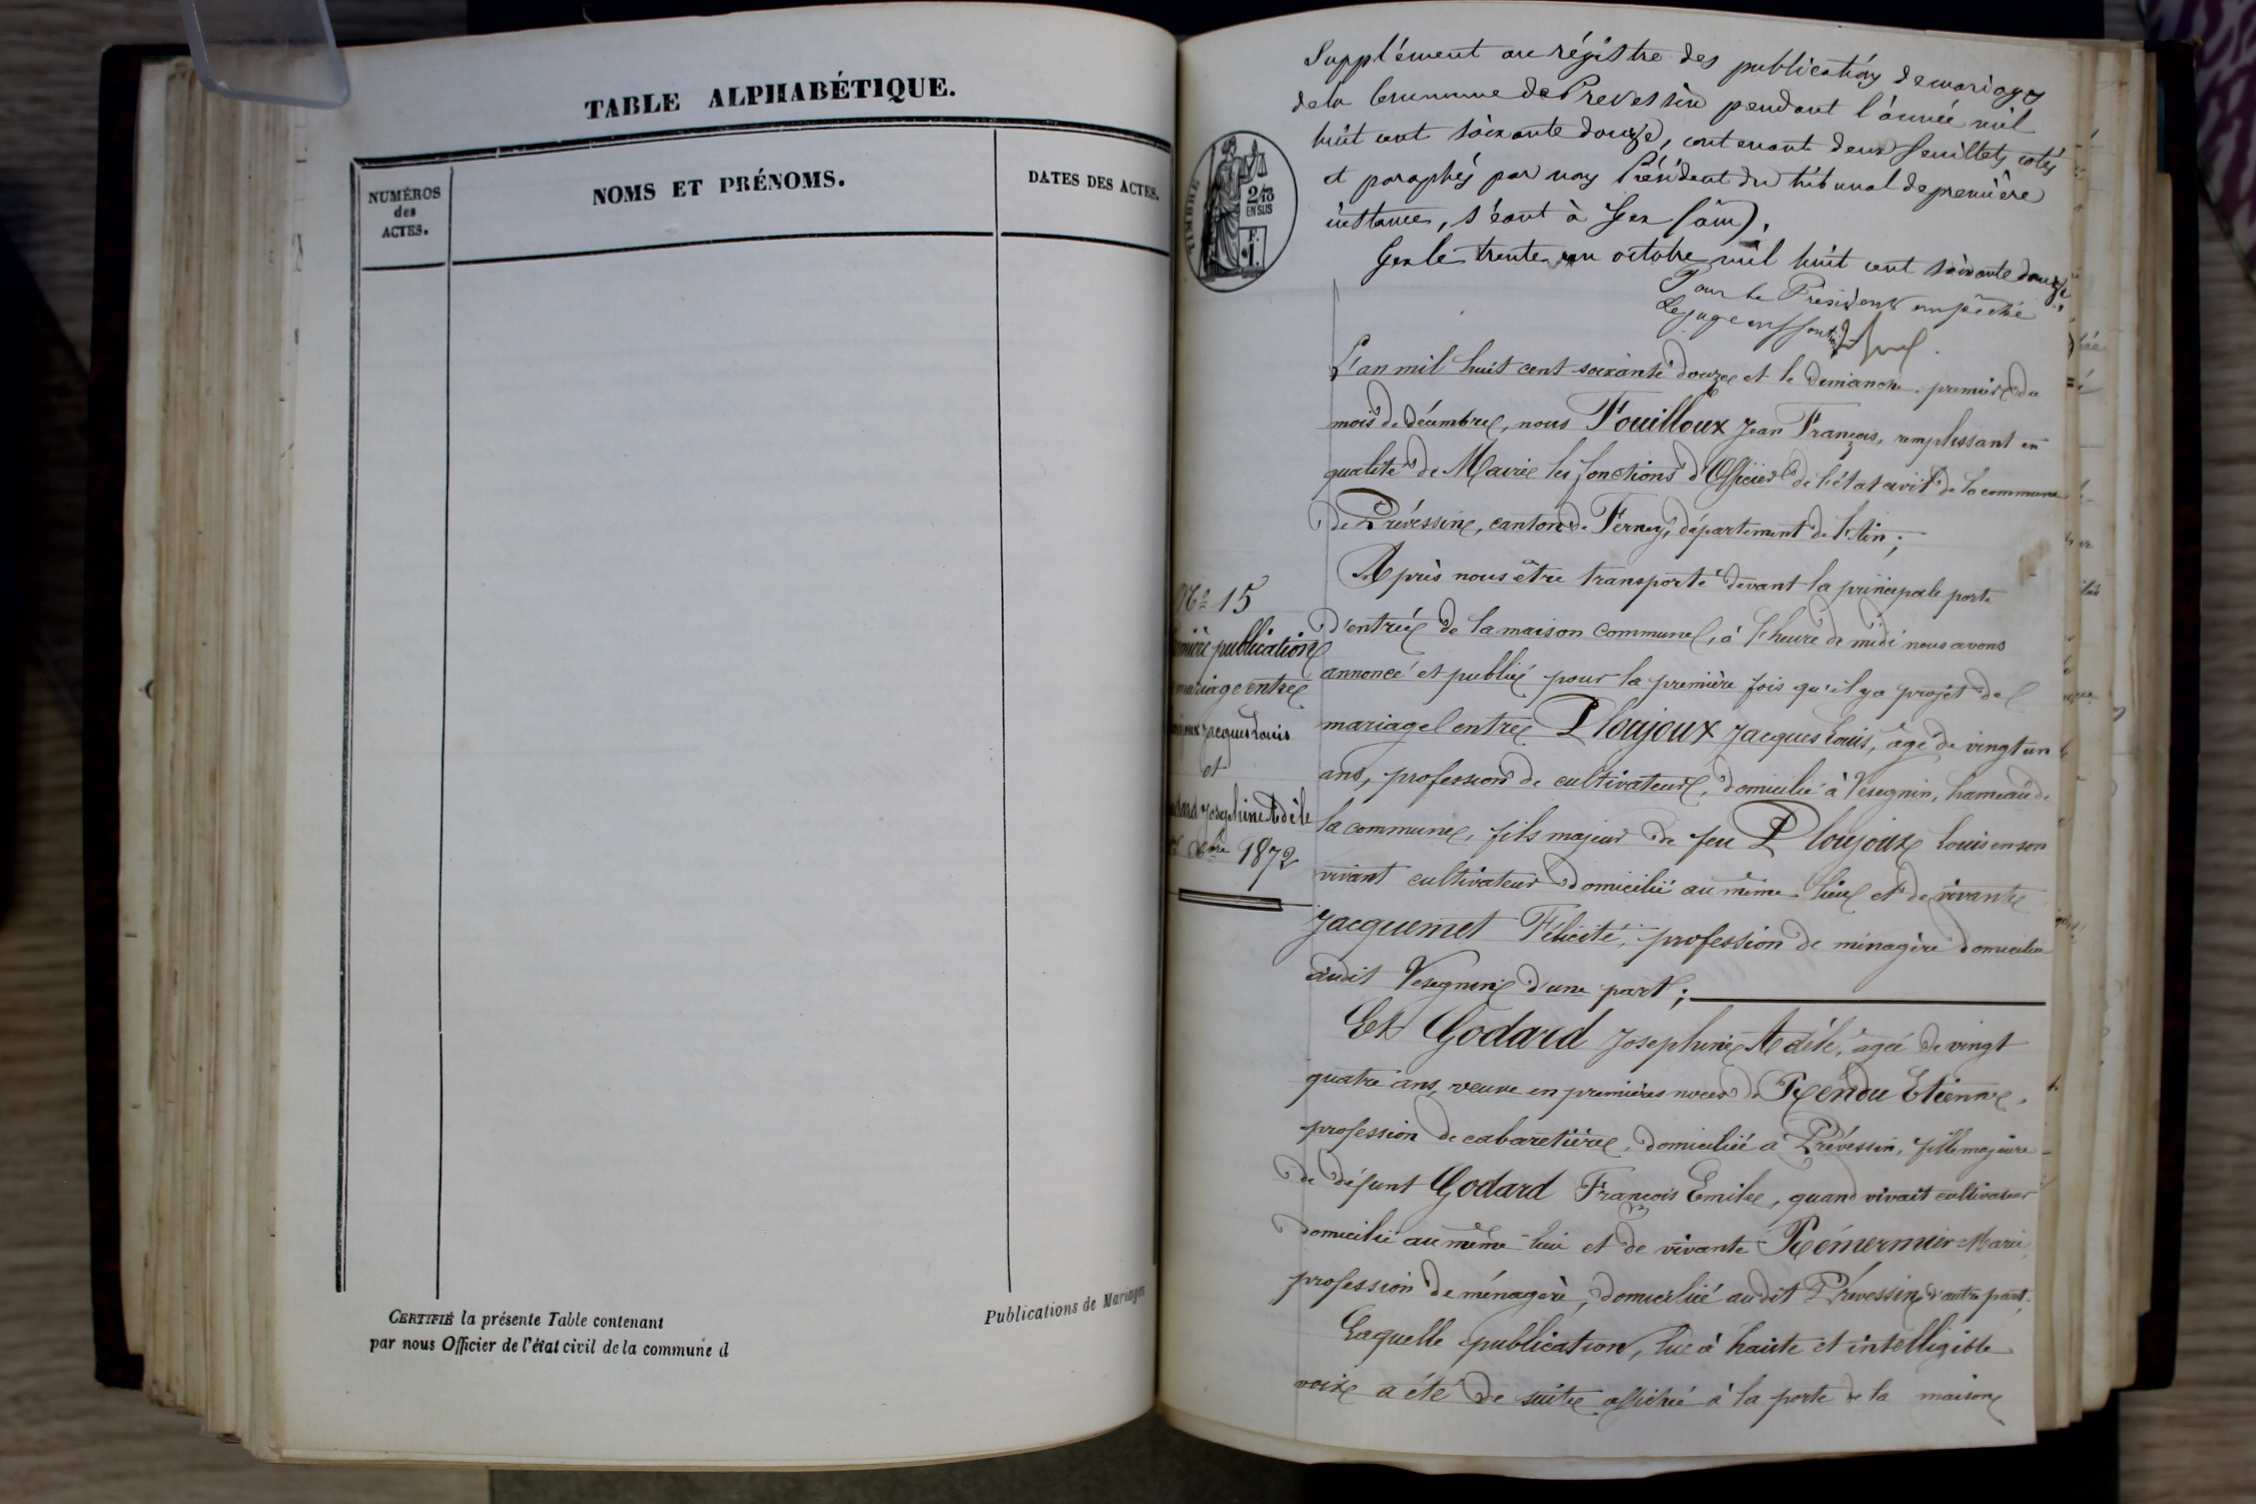 TABLE ALPHABÉTIQUE.
NUMÉROS
des
ACTES.
NOMS ET PRÉNOMS.
DATES DES ACTES.
CERTIFIÉ la présente Table contenant
par nous Officier de l'état civil de la commune d
Publications de Mariages
Supplément au régistre des publications de mariages
de la Commune de Prevessin pendant l'année mil
huit cent soixante douze, contenant deux feuillets cotés
et paraphés par nous Président du tribunal de première
instance, séant à Gex (ain).
Gex le trente un octobre mil huit cent soixante douze
Pour le Président empêché
Le juge
TIMBRE
2/10
EN SUS
F.
1.
L'an mil huit cent soixante douze et le dimanche premier du
mois de décembre, nous Fouilloux Jean François, remplissant en
qualité de Maire les fonctions d'Officier de l'état civil de la commune
de Prévessin, canton de Ferney, département de l'Ain;
Après nous être transporté devant la principale porte
d'entrée de la maison commune, à l'heure de midi nous avons
annoncé et publié pour la première fois qu'il y a projet de
mariage entre Ploujoux Jacques Louis, âgé de vingt un
ans, profession de cultivateur, domicilié à Vesegnin, hameau de
la commune, fils majeur de feu Ploujoux Louis en son
vivant cultivateur domicilié au même lieu et de vivante
Jacquemet Félicité, profession de ménagère domiciliée
audit Vesegnin d'une part;
Et Godard Josephine Adèle, âgée de vingt
quatre ans, veuve en premières noces de Rendu Etienne,
profession de cabaretière, domiciliée à Prévessin, fille majeure
de défunt Godard François Emile, quand vivait cultivateur
domicilié au même lieu et de vivante Rémermier Marie
profession de ménagère, domiciliée audit Prévessin d'autre part.
Laquelle publication, lue à haute et intelligible
voix a été de suite affiché à la porte de la maison
No 15
mière publication
mariage entre
Jacques Louis
et
Josephine Adèle
1872